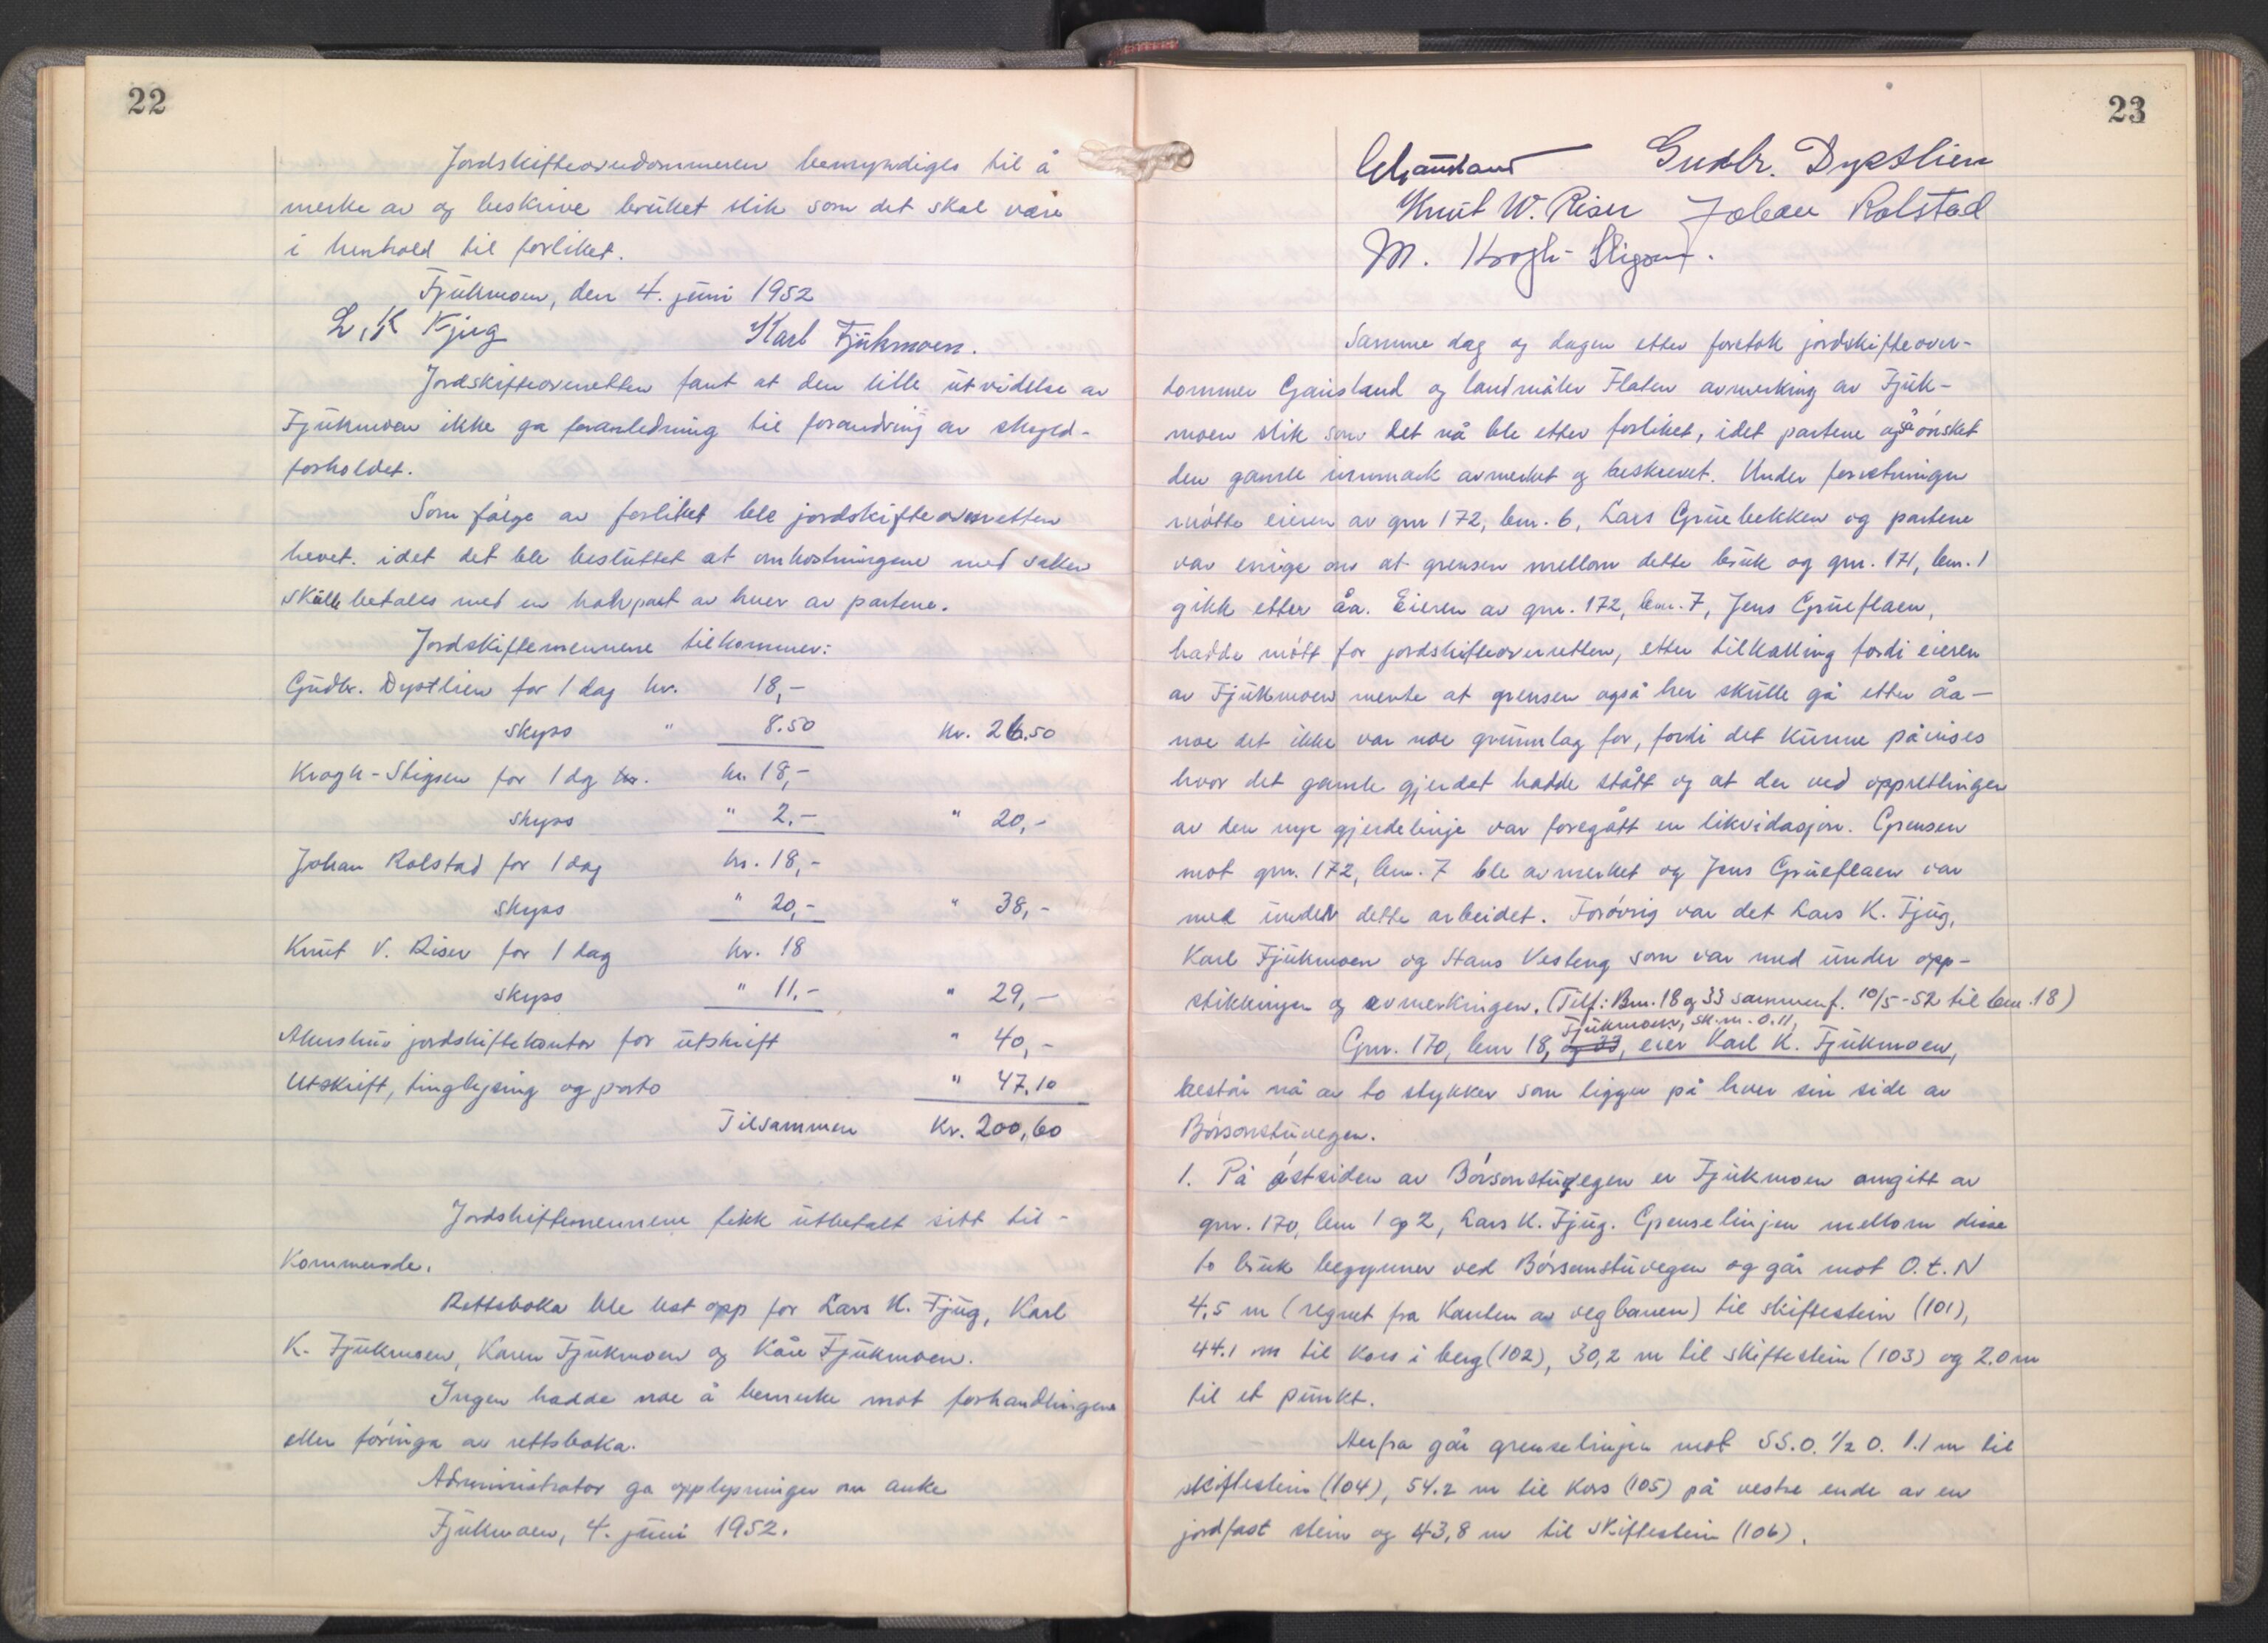 22
Jordskifteoverdommeren bemyndiges til å
merke av og beskrive bruket slik som det skal være
i henhold til forliket.
Fjukmoen, den 4. juni 1952
L. K Fjug Karl Fjukmoen.
Jordskifteoverretten fant at den lille utvidelse av
Fjukmoen ikke ga foranledning til forandring av skyld-
forholdet.
Som følge av forliket ble jordskifteoverretten
hevet. idet det ble besluttet at omkostningene med saken
skulle betales med en halvpart av hver av partene.
Jordskiftemennene tilkommer:
Gudbr. Dystlien for 1 dag kr. 18,-
skyss " 8.50 kr. 26.50
Krogh-Stigsen for 1 dg kr. kr. 18,-
skyss " 2.- " 20,-
Johan Rolstad for 1 dag kr. 18,-
skyss " 20,- " 38,-
Knut V. Riser for 1 dag kr. 18
skyss " 11.- " 29,-
Akershus jordskiftekontor for utskrift " 40,-
Utskrift, tinglysing og porto " 47.10
Tilsammen Kr. 200,60
Jordskiftemennene fikk utbetalt sitt til-
kommende.
Rettsboka ble lest opp for Lars K. Fjug, Karl
K. Fjukmoen, Karen Fjukmoen og Kåre Fjukmoen.
Ingen hadde noe å bemerke mot forhandlingene
eller føringa av rettsboka.
Administrator ga opplysninger om anke
Fjukmoen, 4. juni 1952.
23
Gudbr. Dystlien
Knut W. Riser Johan Rolstad
M. Krogh-Stigsen.
Samme dag og dagen etter foretok jordskifteover-
dommer Gausland og landmåler Flaten avmerking av Fjuk-
moen slik som det nå ble etter forliket, idet partene også ønsket
den gamle innmark avmerket og beskrevet. Under forretningen
møtte eieren av gnr 172, bnr. 6, Lars Gruebekken og partene
var enige om at grensen mellom dette bruk og gnr. 171, bnr. 1
gikk etter åa. Eieren av gnr. 172, bnr. 7, Jens Grueflaen,
hadde møtt for jordskifteoverretten, etter tilkalling fordi eieren
av Fjukmoen mente at grensen også her skulle gå etter åa -
noe det ikke var noe grunnlag for, fordi det kunne påvises
hvor det gamle gjerdet hadde stått og at der ved opprettingen
av den nye gjerdelinje var foregått en likvidasjon. Grensen
mot gnr. 172, bnr. 7 ble avmerket og Jens Grueflaen var
med under dette arbeidet. Forøvrig var det Lars K. Fjug,
Karl Fjukmoen og Hans Vesteng som var med under opp-
stikkingen og avmerkingen. (Tilf: Bnr. 18 og 33 sammenf. 10/5-52 til bnr. 18)
Fjukmoen, sk.m. 0.11,
Gnr. 170, bnr 18, og 33, eier Karl K. Fjukmoen,
består nå av to stykker som ligger på hver sin side av
Børsonstuvegen.
1. På østsiden av Børsonstuvegen er Fjukmoen omgitt av
gnr. 170, bnr 1 og 2, Lars K. Fjug. Grenselinjen mellom disse
to bruk begynner ved Børsonstuvegen og går mot O.t.N
4,5 m (regnet fra kanten av vegbanen) til skiftestein (101),
44.1 m til kors i berg (102), 30,2 m til skiftestein (103) og 2.0 m
til et punkt.
Herfra går grenselinjen mot SS.O. 1/2 O. 1.1 m til
skiftestein (104), 54.2 m til kors (105) på vestre ende av en
jordfast stein og 43,8 m til skiftestein (106).